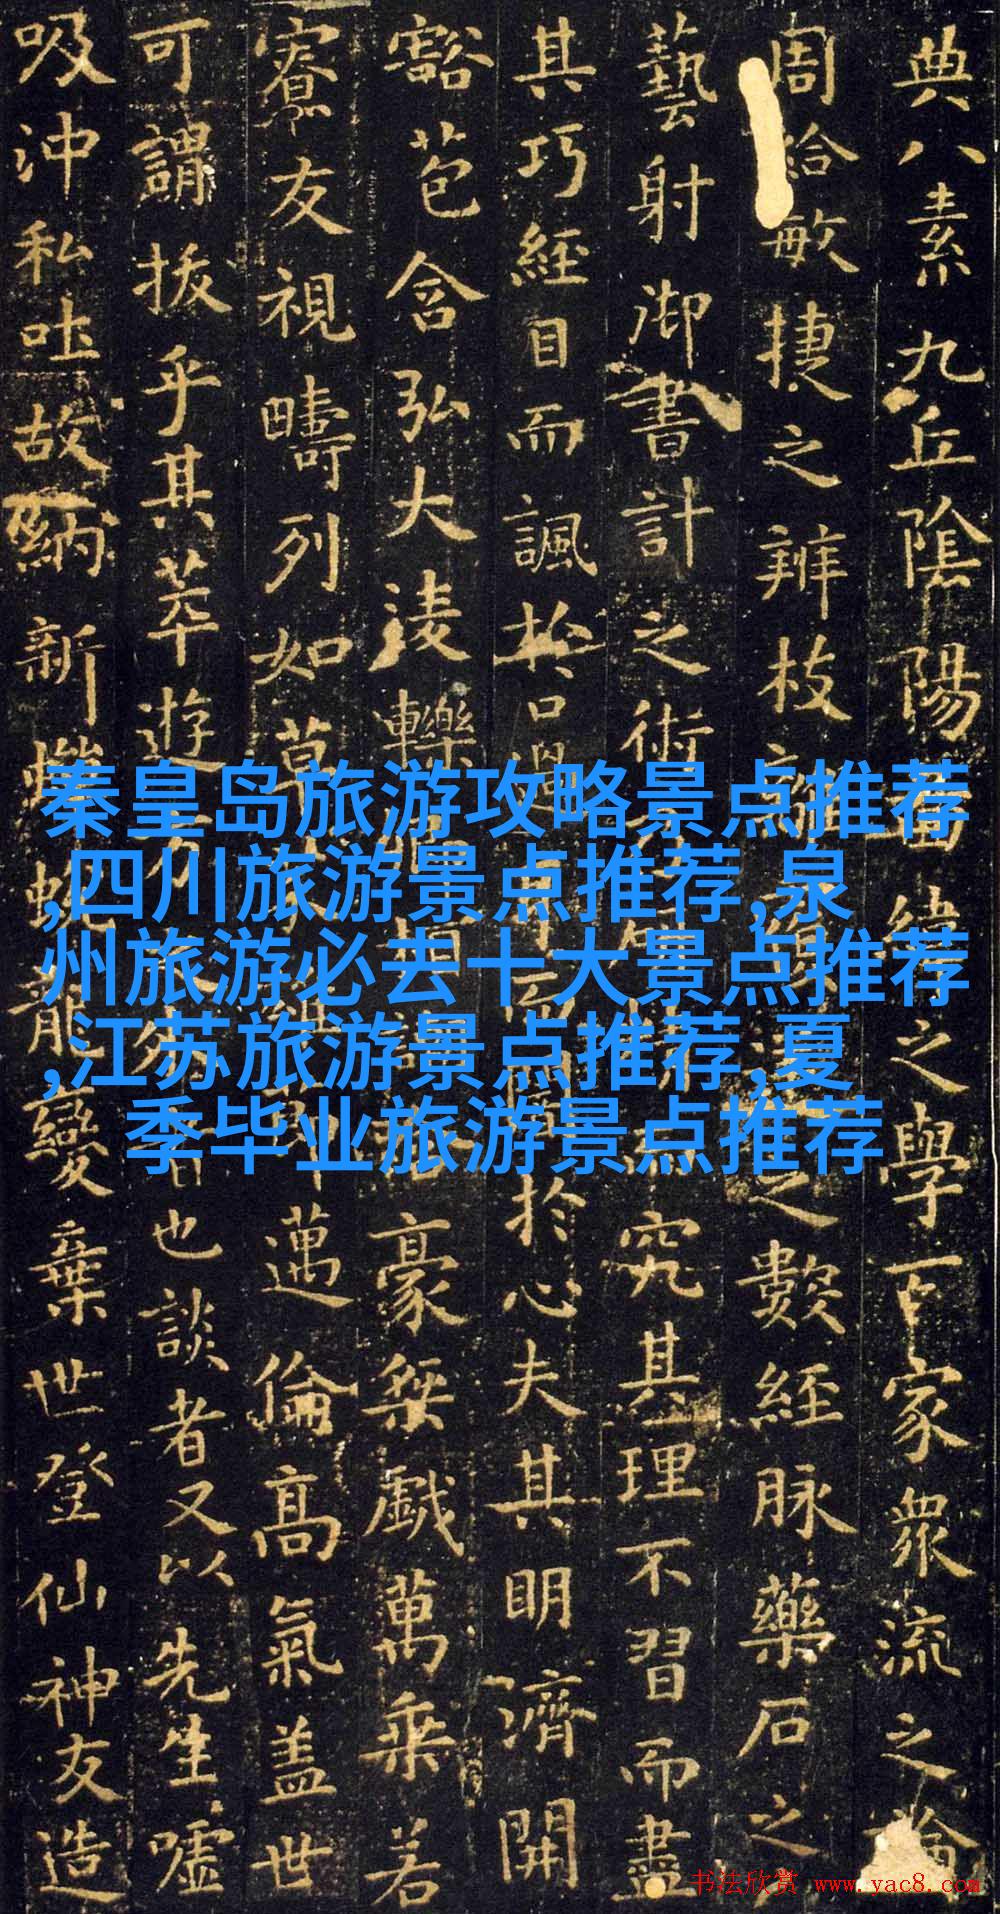 典八素九丘陰陽緯之學百家衆流之論
周給敏捷之辨枝之數經脉藥石之
藝射御書計之術究其理不習而盡
其巧經目而諷於口過於心夫其明濟開
豁苞含弘大淩轢豪桀戲萬乘若
寮友視疇列如草邁倫高氣蓋世
可謂拔乎其萃遊方也談者又以先生噓
吸沖和吐故納新蛻龍變棄世登仙神友造
秦皇岛旅游攻略景点推荐
,四川旅游景点推荐,泉
州旅游必去十大景点推荐
,江苏旅游景点推荐,夏
季毕业旅游景点推荐
书法欣赏 www.yac8.com